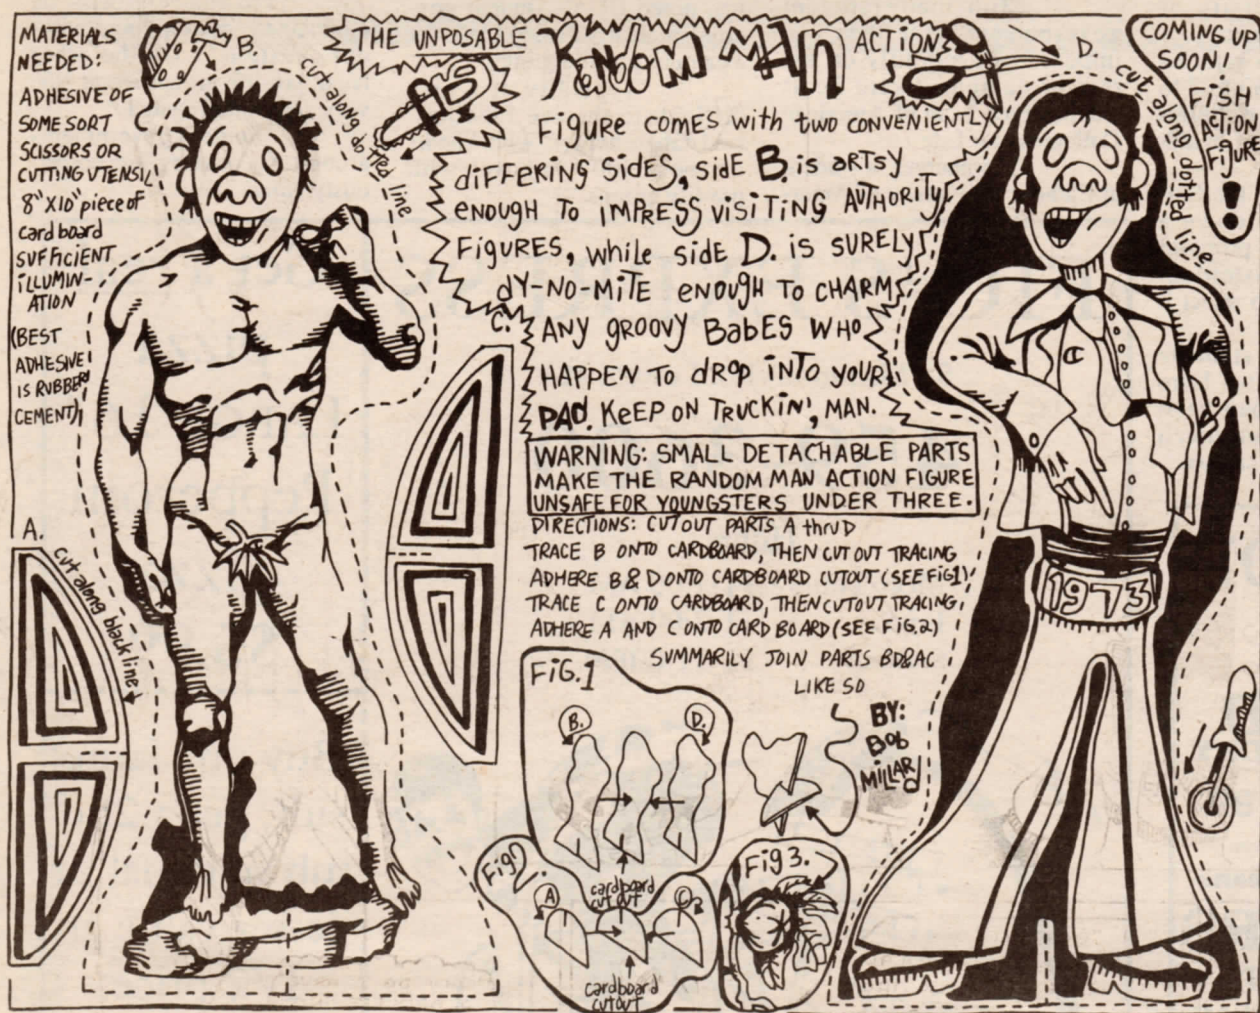 MATERIALS
NEEDED:
ADHESIVE OF
SOME SORT
SCISSORS OR
CUTTING UTENSIL
8"X10" piece of
cardboard
SUFFICIENT
iLLUMIN-
ATION
(BEST
ADHESIVE
IS RUBBER
CEMENT)
B.
cut along dotted line
THE UNPOSABLE
RANDOM MAN
ACTION
Figure comes with two conveniently
differing sides, side B. is artsy
enough to impress visiting authority
figures, while side D. is surely
dy-no-mite enough to charm
any groovy babes who
happen to drop into your
pad. Keep on truckin', man.
WARNING: SMALL DETACHABLE PARTS
MAKE THE RANDOM MAN ACTION FIGURE
UNSAFE FOR YOUNGSTERS UNDER THREE.
DIRECTIONS: CUT OUT PARTS A thru D
TRACE B ONTO CARDBOARD, THEN CUT OUT TRACING
ADHERE B & D ONTO CARDBOARD CUTOUT (SEE FIG1)
TRACE C ONTO CARDBOARD, THEN CUTOUT TRACING,
ADHERE A AND C ONTO CARD BOARD (SEE FiG.2)
SUMMARILY JOIN PARTS BD&AC
LIKE SO
BY:
Bob
MILLARD
D.
cut along dotted line
COMING UP
SOON!
FiSH
ACTION
FiGURE
!
C.
A.
cut along black line
1973
FiG.1
B.
D.
cardboard
cut out
Fig 2.
A
C.
cardboard
cutout
Fig 3.